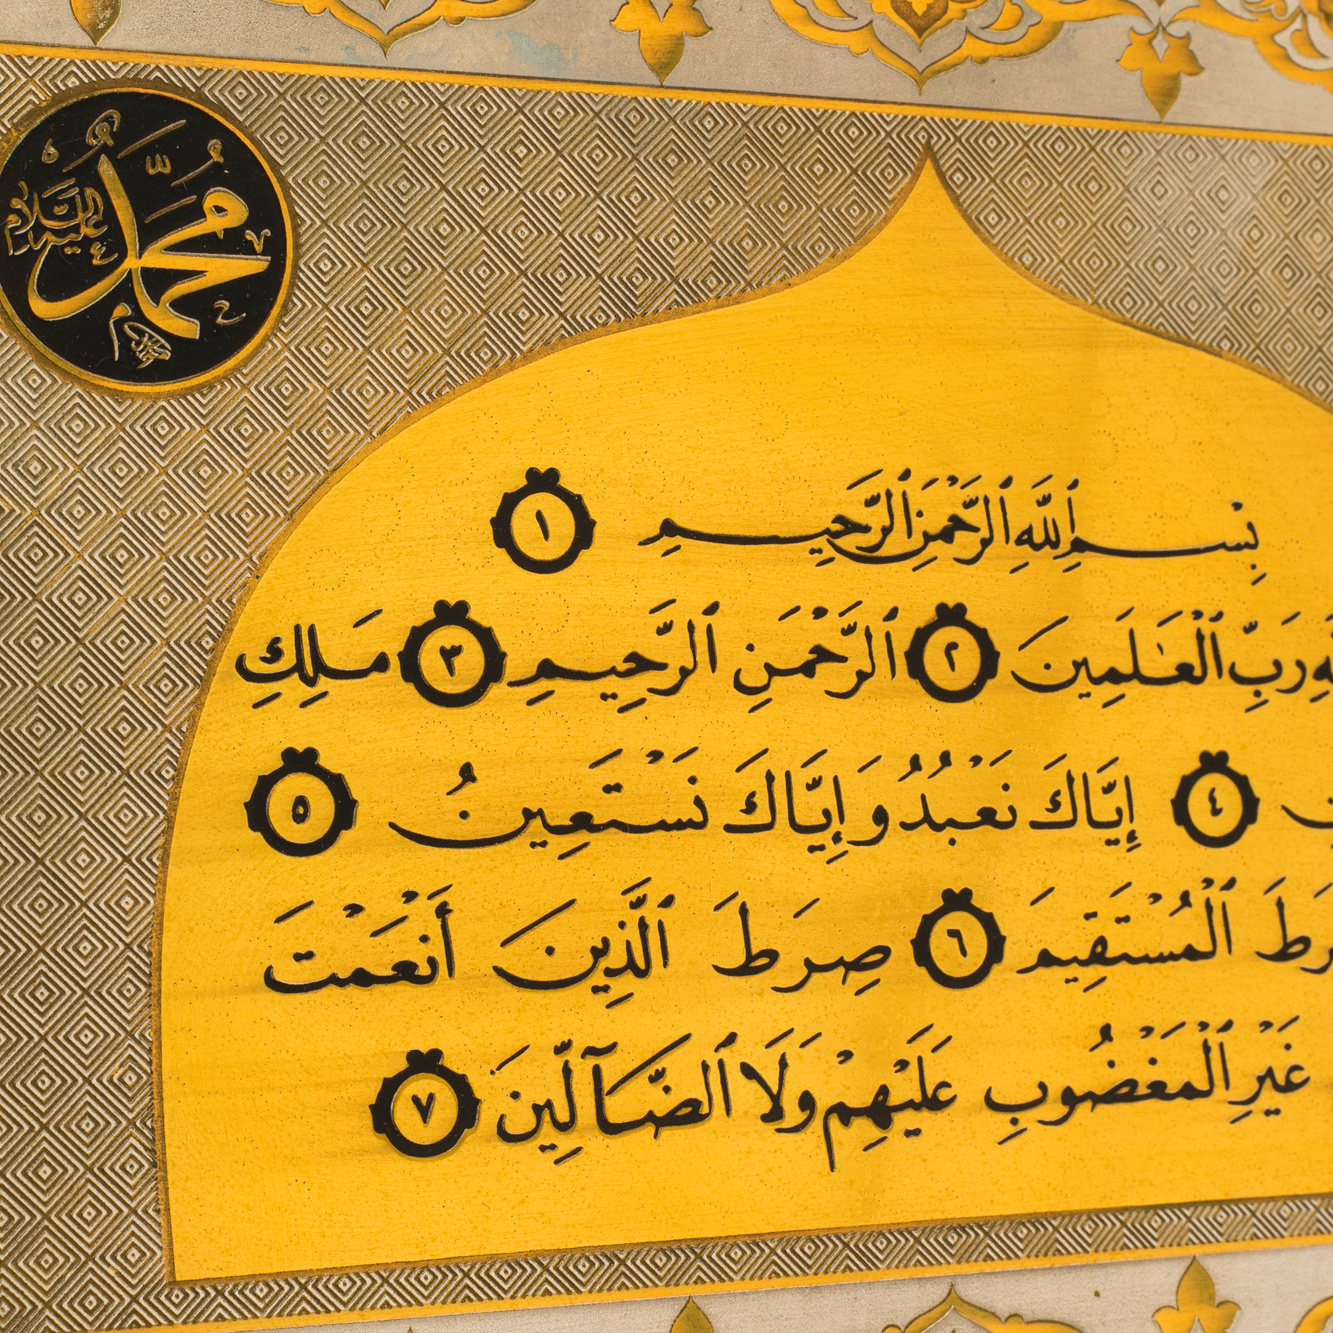 محمد
عليه السلام
بِسْمِ ٱللَّهِ ٱلرَّحْمَنِ ٱلرَّحِيمِ ١
رَبِّ ٱلْعَٰلَمِينَ ٢ ٱلرَّحْمَنِ ٱلرَّحِيمِ ٣ مَلِكِ
٤ إِيَّاكَ نَعْبُدُ وَإِيَّاكَ نَسْتَعِينُ ٥
ٱلْمُسْتَقِيمَ ٦ صِرَطَ ٱلَّذِينَ أَنْعَمْتَ
غَيْرِ ٱلْمَغْضُوبِ عَلَيْهِمْ وَلَا ٱلضَّآلِّينَ ٧